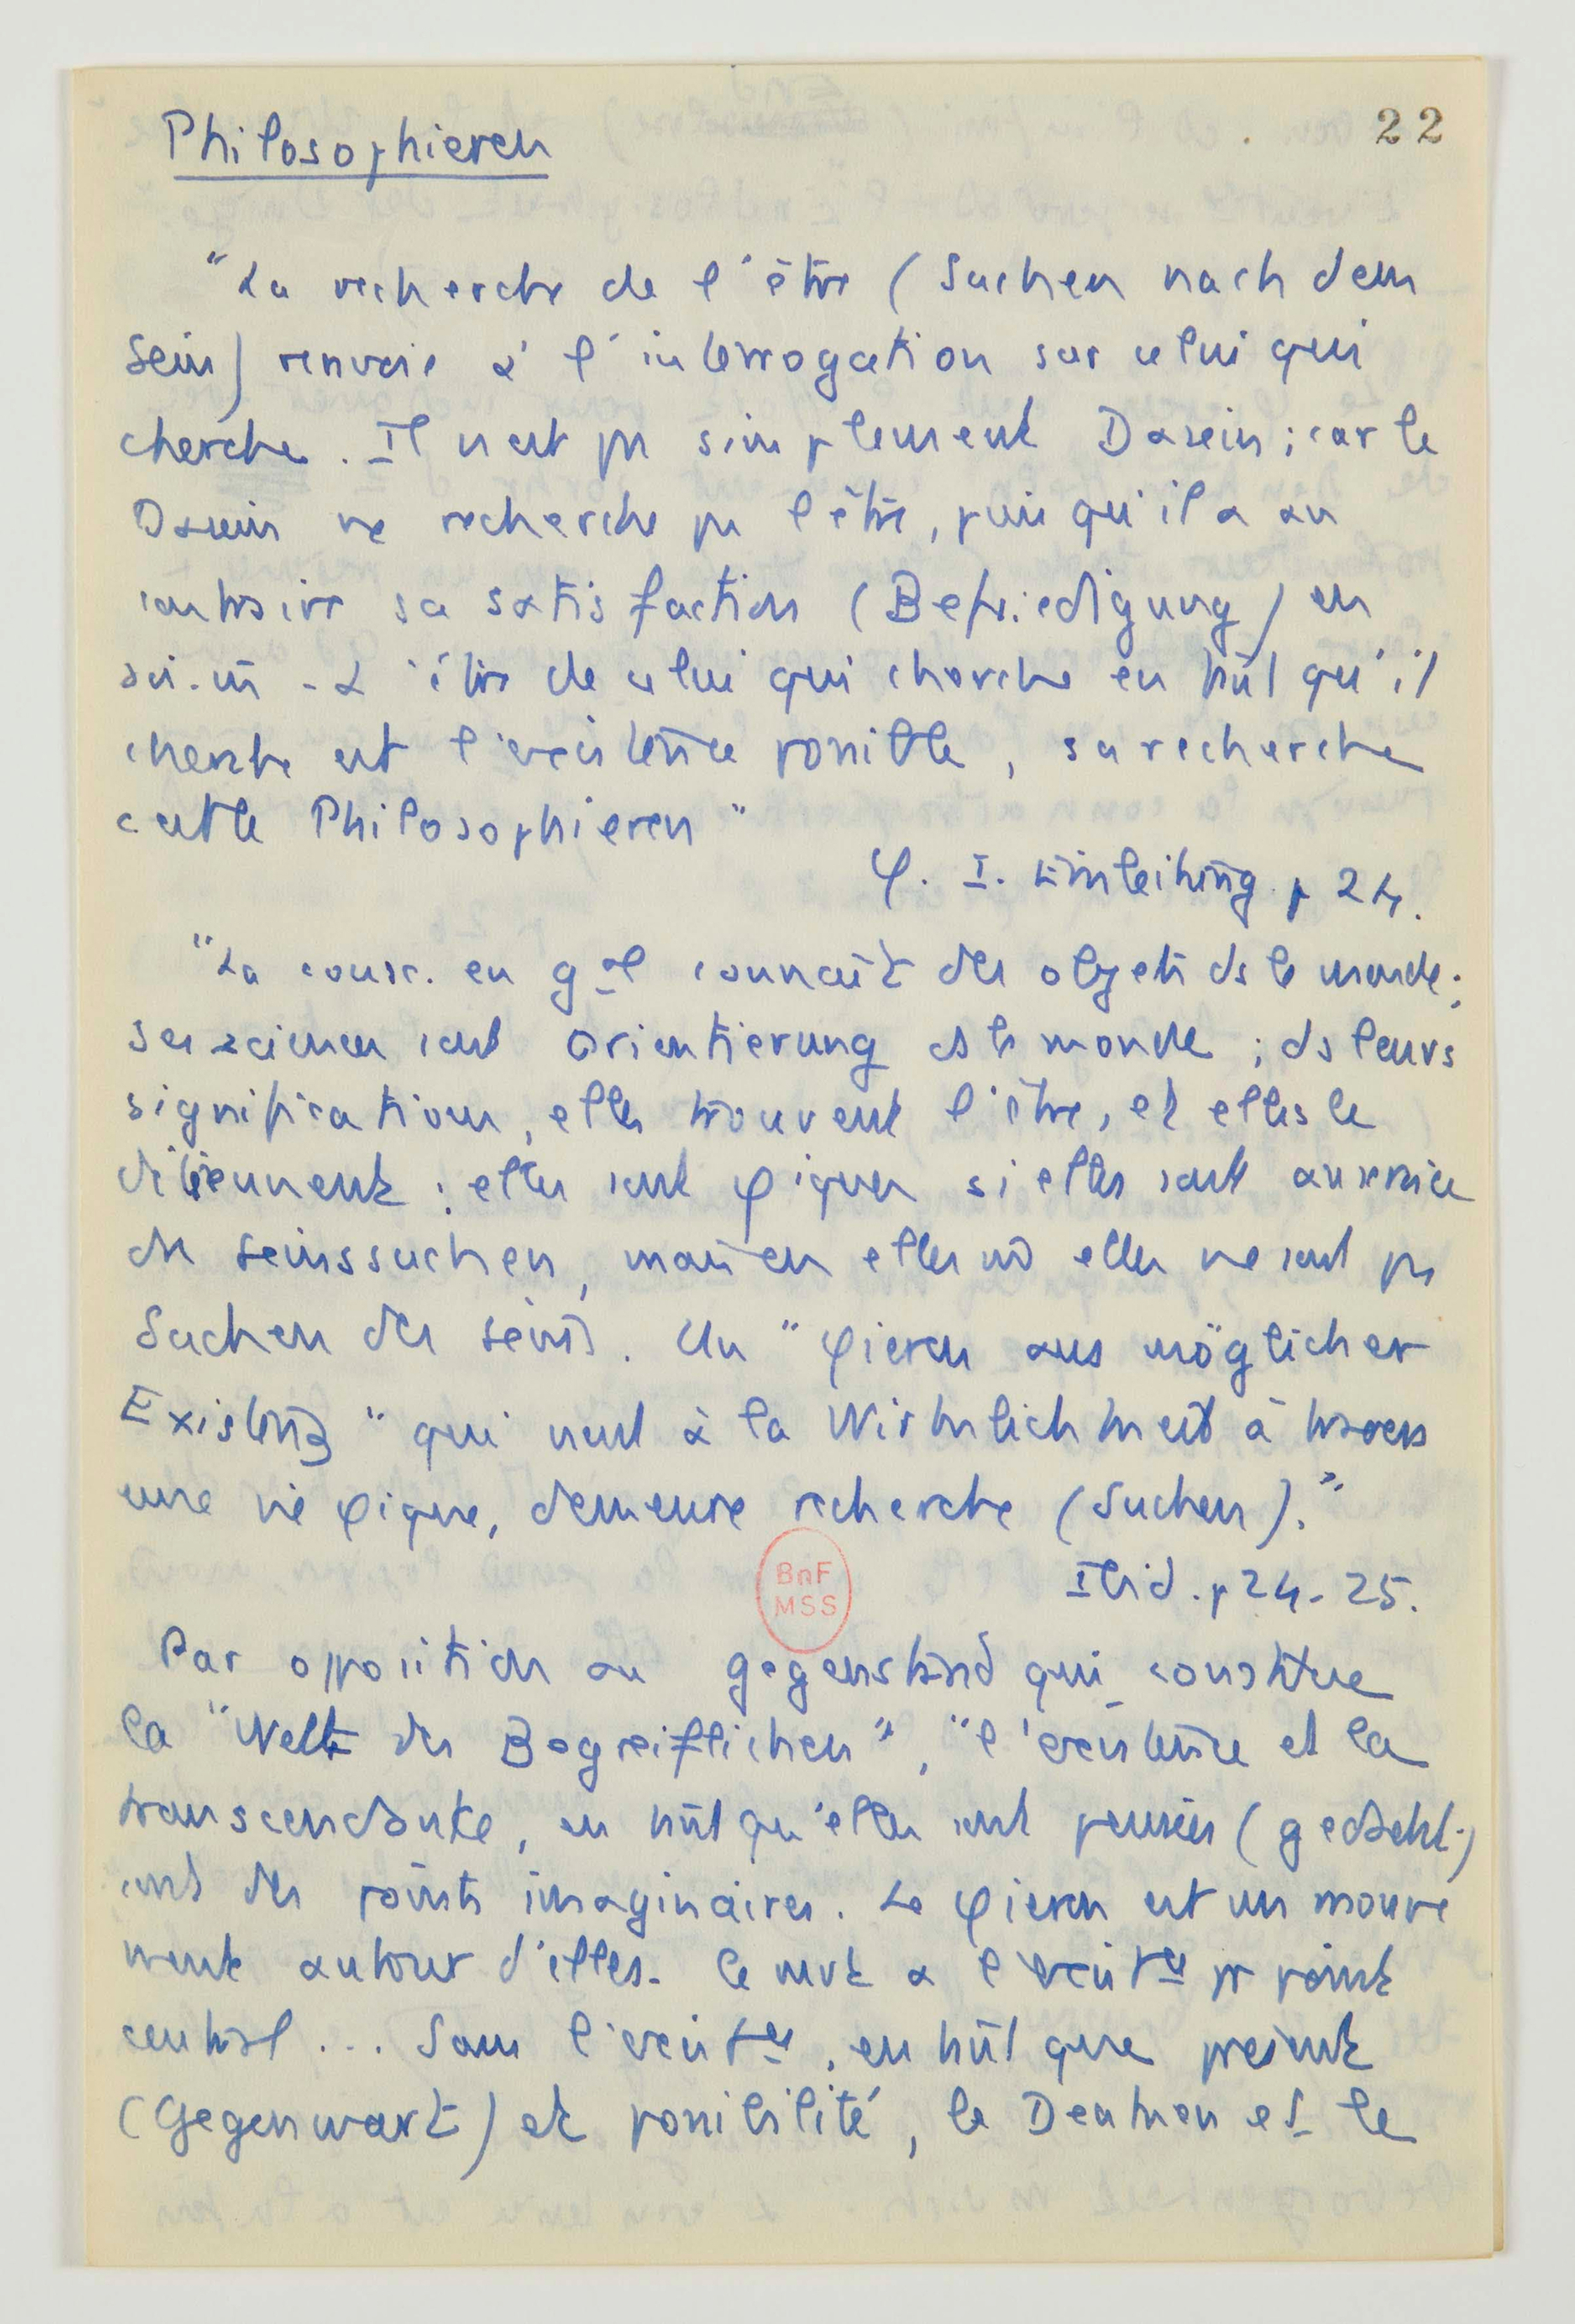 22
Philosophieren
"La recherche de l'être (Suchen nach dem
Sein) renvoie à l'interrogation sur celui qui
cherche. Il n'est pas simplement Dasein ; car le
Dasein ne recherche pas l'être, puisqu'il a au
contraire sa satisfaction (Befriedigung) en
soi-m̄ - L'être de celui qui cherche en tant qu'il
cherche est l'existence possible, sa recherche
c'est le Philosophieren"
φ. I. Einleitung. p 24.
"La consc. en gal connaît des objets ds le monde ;
ses sciences sont Orientierung ds le monde ; ds leurs
significations, elles trouvent l'être, et elles le
détiennent ; elles sont φiques si elles sont au service
du Seinssuchen, mais en elles m̄ elles ne sont pas
Suchen des Seins. Un "φieren aus möglicher
Existenz" qui veut à la Wirklichkeit à travers
une vie φique, demeure recherche (Suchen)."
Ibid. p 24-25.
Par opposition au Gegenstand qui constitue
la "Welt des Begreiflichen", "l'existence et la
transcendance, en tant qu'elles sont pensées (gedacht)
sont des points imaginaires. Le φieren est un mouve
ment autour d'elles. Ce mvt a l'existce pr point
central ... Sans l'existce, en tant que présent
(Gegenwart) et possibilité, le Denken et le
BnF
MSS